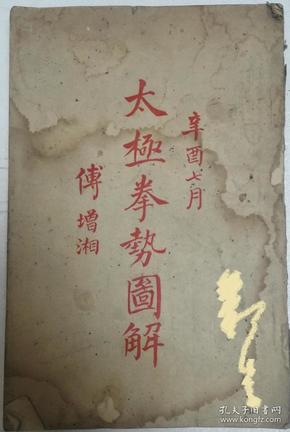 辛酉七月
太極拳勢圖解
傅增湘
孔夫子旧书网
www.kongfz.com